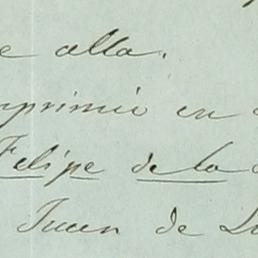 e alla.
mprimió en
Felipe de la
Juan de L